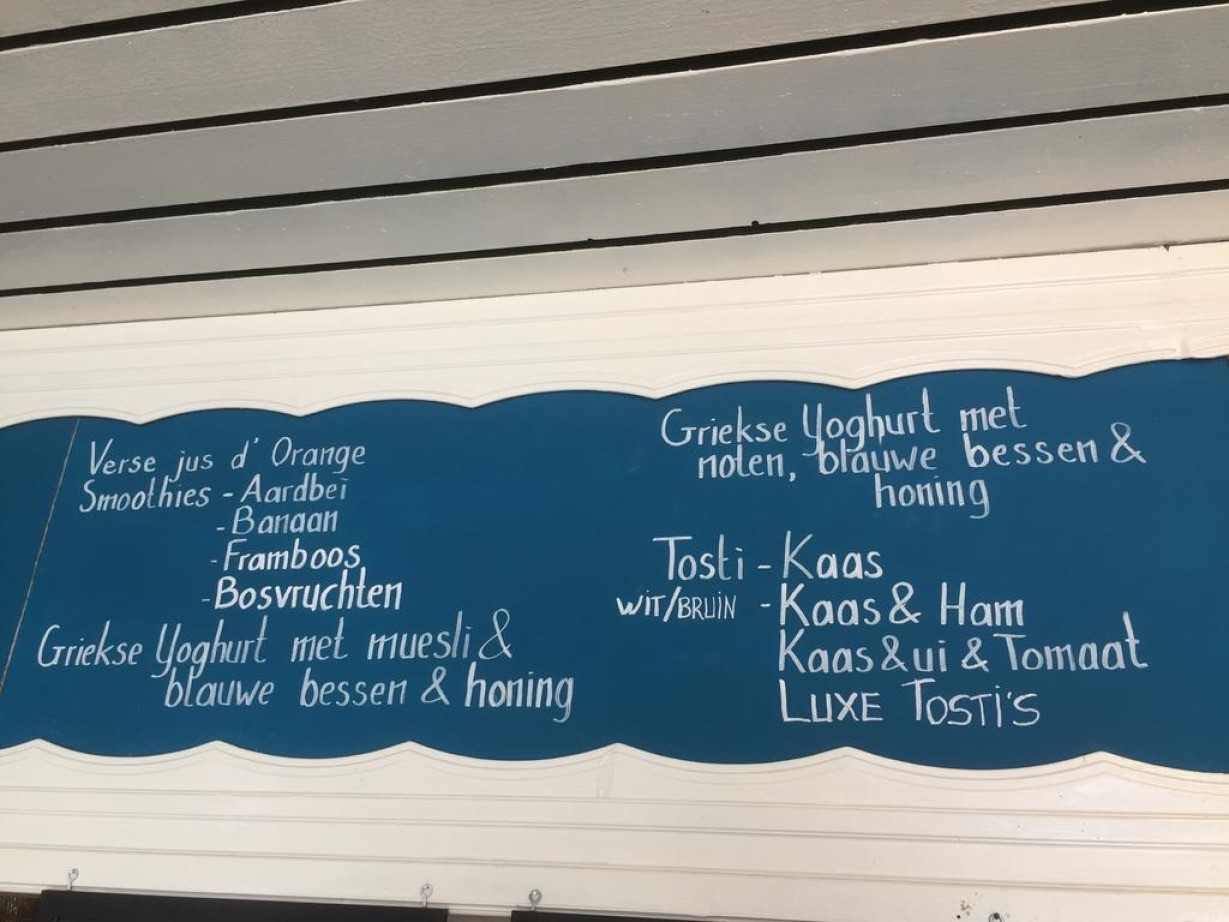 Verse jus d' Orange
Smoothies - Aardbei
- Banaan
- Framboos
- Bosvruchten
Griekse Yoghurt met muesli &
blauwe bessen & honing
Griekse Yoghurt met
noten, blauwe bessen &
honing
Tosti - Kaas
WIT/BRUIN - Kaas & Ham
Kaas & ui & Tomaat
LUXE TOSTI'S